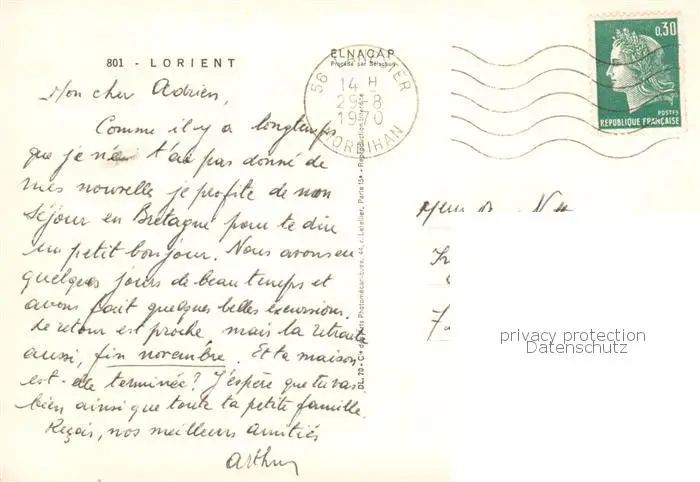 801 - LORIENT
ELNACAP
Procédé par Sélection
56
14 H
29-8
1970
MORBIHAN
0,30
POSTES
REPUBLIQUE FRANÇAISE
Mon cher Adrien,
Comme il y a longtemps
que je n'ai t'ai pas donné de
mes nouvelle je profite de mon
séjour en Bretagne pour te dire
un petit bonjour. Nous avons eu
quelques jours de beau temps et
avons fait quelques belles excursions.
Le retour est proche, mais la retraite
aussi, fin novembre. Et ta maison
est-elle terminée? J'espère que tu vas
bien ainsi que toute ta petite famille.
Reçois, nos meilleurs amitiés
Arthur
privacy protection
Datenschutz